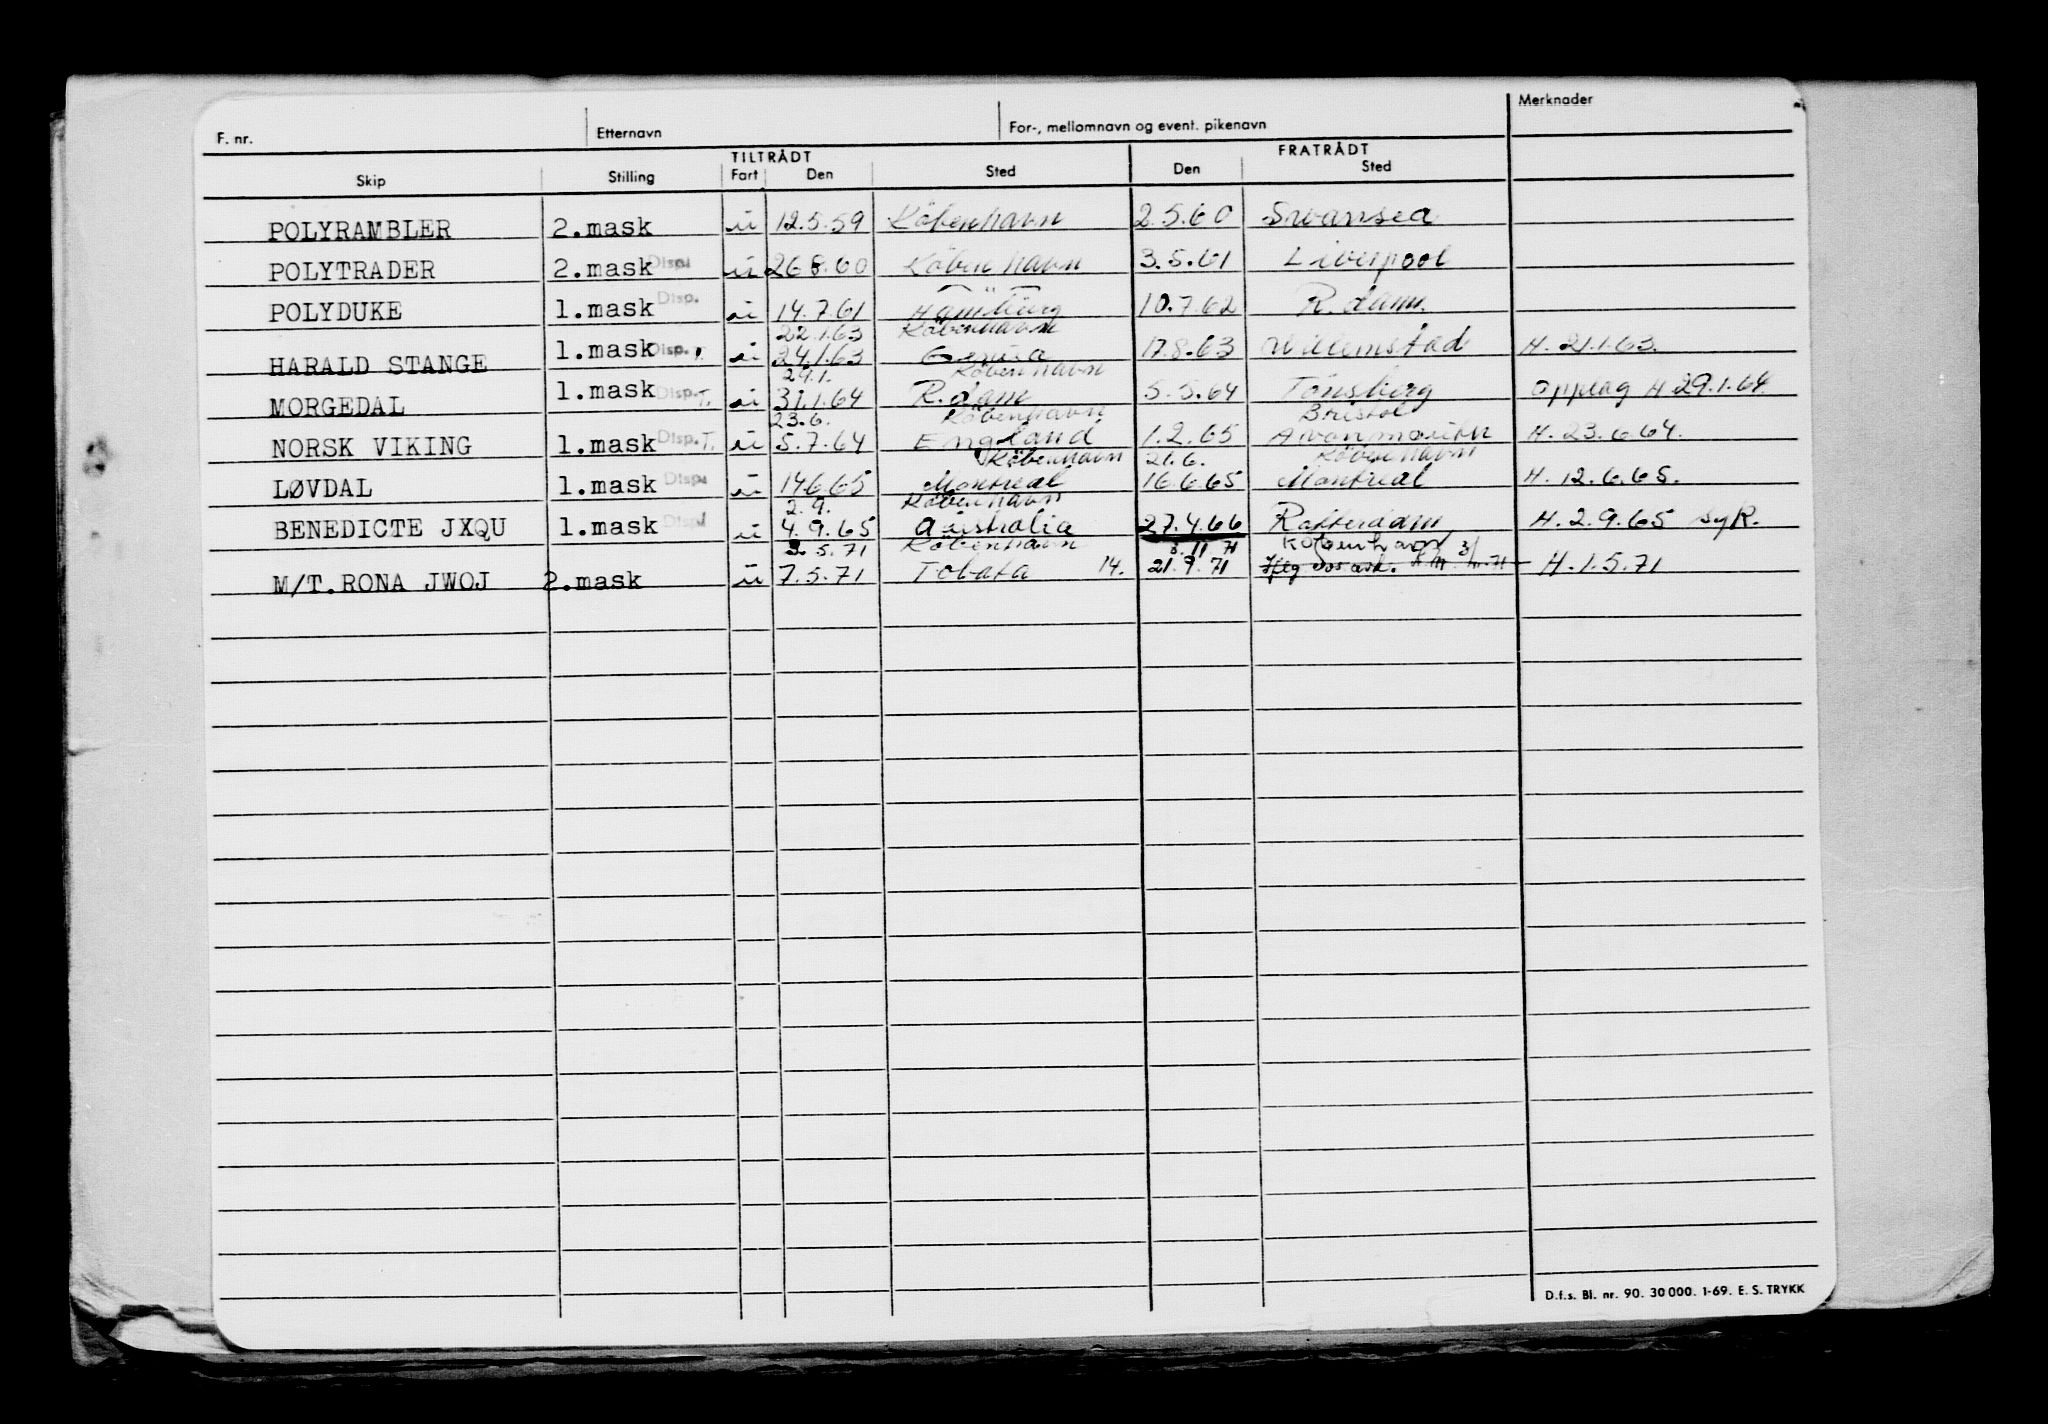 F. nr. Etternavn For-, mellomnavn og event. pikenavn Merknader
TILTRÅDT FRATRÅDT
Skip Stilling Fart Den Sted Den Sted
POLYRAMBLER 2.mask ü 12.5.59 København 2.5.60 Swansea
POLYTRADER 2.mask Disp. ü 26.8.60 København 3.5.61 Liverpool
POLYDUKE 1.mask Disp. ü 14.7.61 Hamburg 10.7.62 R.dam.
22.1.63 København
HARALD STANGE 1.mask Disp. T. ü 24.1.63 Genua 17.8.63 Willemstad H. 21.1.63.
29.1. København
MORGEDAL 1.mask Disp. T. ü 31.1.64 R.dam 5.5.64 Tønsberg Opplag H 29.1.64.
23.6. København Bristol
NORSK VIKING 1.mask Disp. T. ü 5.7.64 England 1.2.65 Avonmouth H. 23.6.64.
København 21.6. København
LØVDAL 1.mask Disp. ü 14.6.65 Montreal 16.6.65 Montreal H. 12.6.65.
2.9. København
BENEDICTE JXQU 1.mask Disp. ü 4.9.65 Australia 27.4.66 Rotterdam H. 2.9.65 syk.
3.5.71 København 3.11 71 København
M/T.RONA JWOJ 2.mask ü 7.5.71 Tobata 14. 21.9.71 H.1.5.71
D.f.s. Bl. nr. 90. 30 000. 1-69. E. S. TRYKK